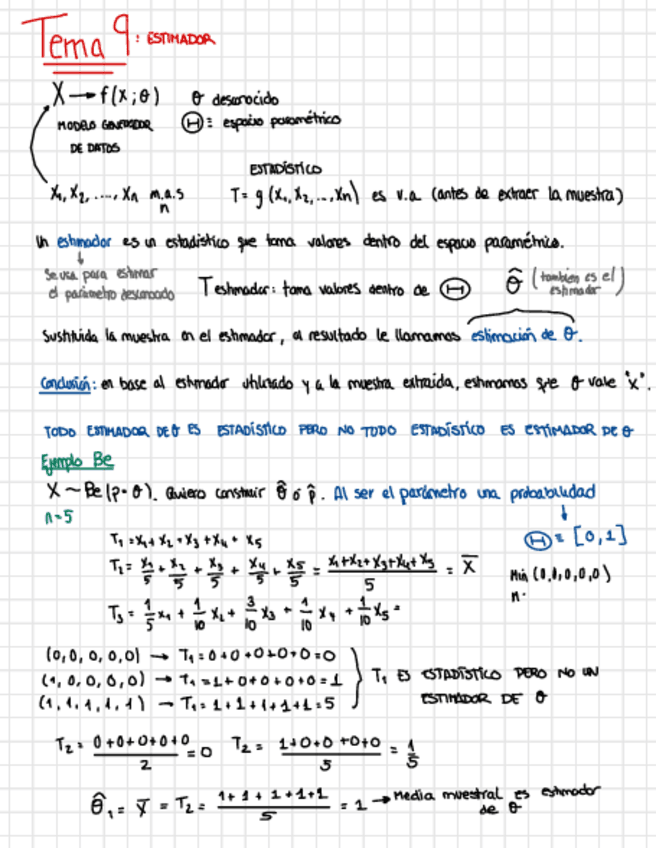 Tema 9: ESTIMADOR
X → f(x;θ) θ desconocido
MODELO GENERADOR Θ ≡ espacio paramétrico
DE DATOS
ESTADÍSTICO
X₁, X₂, ...., Xn m.a.s T = g(X₁, X₂, ..., Xn) es v.a (antes de extraer la muestra)
n
Un estimador es un estadístico que toma valores dentro del espacio paramétrico.
↓
Se usa para estimar
el parámetro desconocido
T estimador: toma valores dentro de Θ θ̂ (tambien es el
estimador)
Sustituida la muestra en el estimador, al resultado le llamamos estimación de θ.
Conclusión: en base al estimador utilizado y a la muestra extraida, estimamos que θ vale "x".
TODO ESTIMADOR DE θ ES ESTADÍSTICO PERO NO TODO ESTADÍSTICO ES ESTIMADOR DE θ
Ejemplo Be
X ~ Be(p=θ). Quiero construir θ̂ ó p̂. Al ser el parámetro una probabilidad
n=5
↓
Θ = [0,1]
T₁ = X₁ + X₂ + X₃ + X₄ + X₅
T₂ = X₁/5 + X₂/5 + X₃/5 + X₄/5 + X₅/5 = X₁+X₂+X₃+X₄+X₅/5 = X̄
Min (0,0,0,0,0)
T₃ = 1/5 X₁ + 1/10 X₂ + 3/10 X₃ + 1/10 X₄ + 1/10 X₅ =
(0,0,0,0,0) → T₁ = 0+0+0+0+0 = 0
(1,0,0,0,0) → T₁ = 1+0+0+0+0 = 1
(1,1,1,1,1) → T₁ = 1+1+1+1+1 = 5
T₁ ES ESTADÍSTICO PERO NO UN
ESTIMADOR DE θ
T₂ = 0+0+0+0+0/2 = 0 T₂ = 1+0+0+0+0/5 = 1/5
θ̂₁ = X̄ = T₂ = 1+1+1+1+1/5 = 1 → Media muestral es estimador
de θ